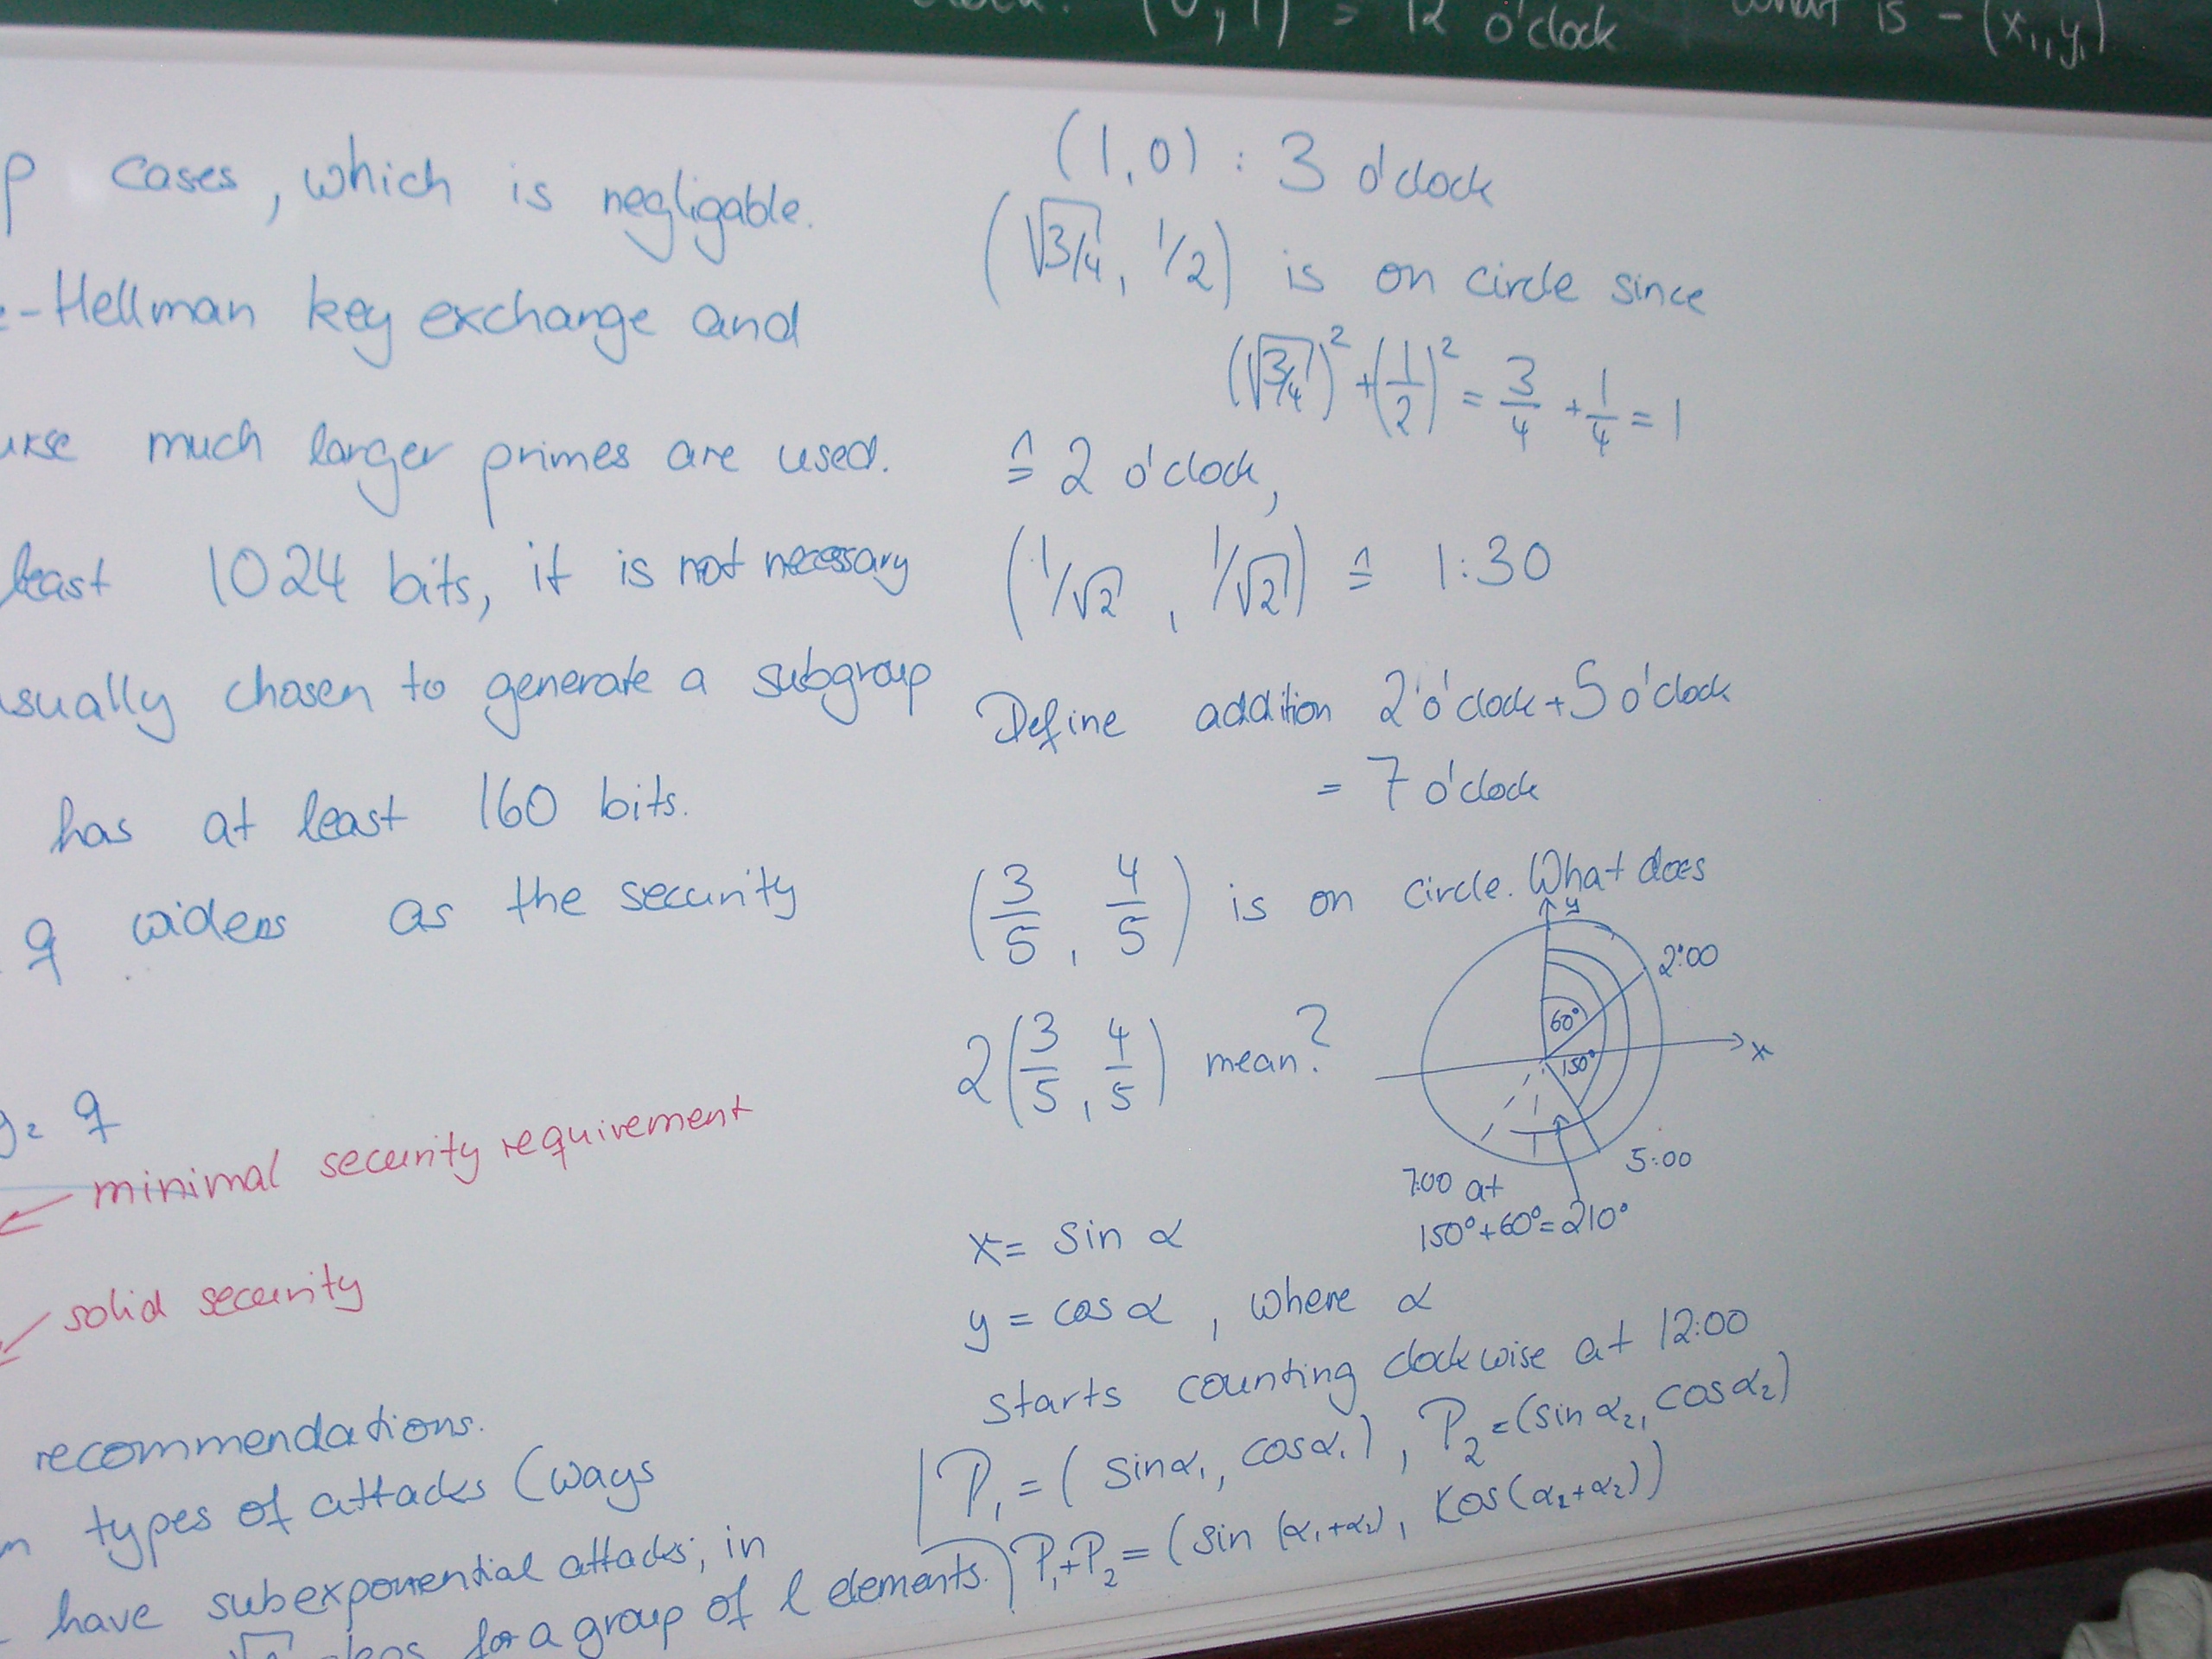 (0, 1) = 12 o'clock
what is - (x₁, y₁)
p cases, which is negligable.
-Hellman key exchange and
much larger primes are used.
least 1024 bits, it is not necessary
sually chosen to generate a subgroup
has at least 160 bits.
q widens as the security
q
minimal security requirement
solid security
recommendations.
types of attacks (ways
have subexponential attacks; in
for a group of l elements.
(1,0) : 3 o'clock
(√3/4, 1/2) is on circle since
(√3/4)² + (1/2)² = 3/4 + 1/4 = 1
≙ 2 o'clock,
(1/√2, 1/√2) ≙ 1:30
Define addition 2 o'clock + 5 o'clock
= 7 o'clock
(3/5, 4/5) is on circle. What does
2(3/5, 4/5) mean?
y
2:00
60°
x
150°
5:00
7:00 at
150°+60°=210°
x = sin α
y = cos α, where α
starts counting clockwise at 12:00
P₁ = (sin α₁, cos α₁), P₂ = (sin α₂, cos α₂)
P₁+P₂ = (sin (α₁+α₂), cos(α₂+α₂))